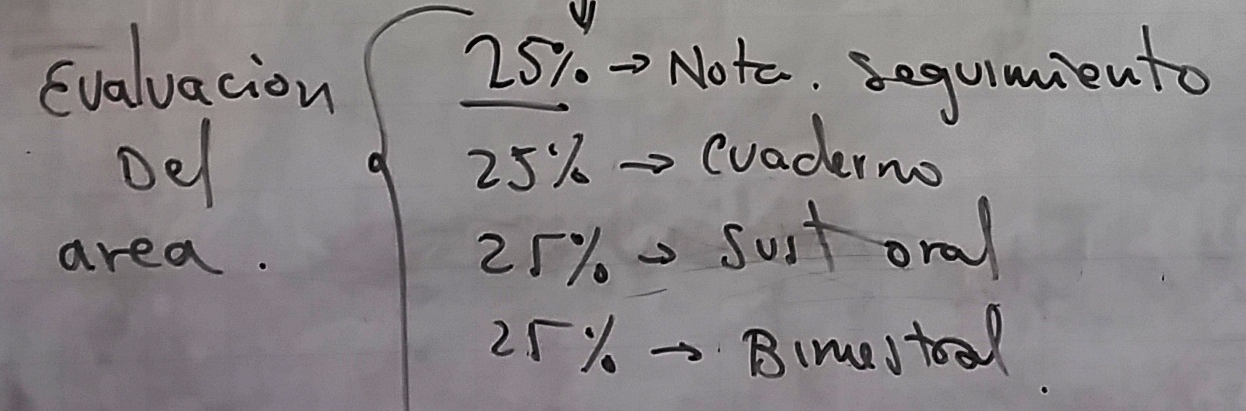 Evaluacion
Del
area.
25% → Nota. seguimiento
25% → Cuaderno
25% → Sust oral
25% → Bimestral.